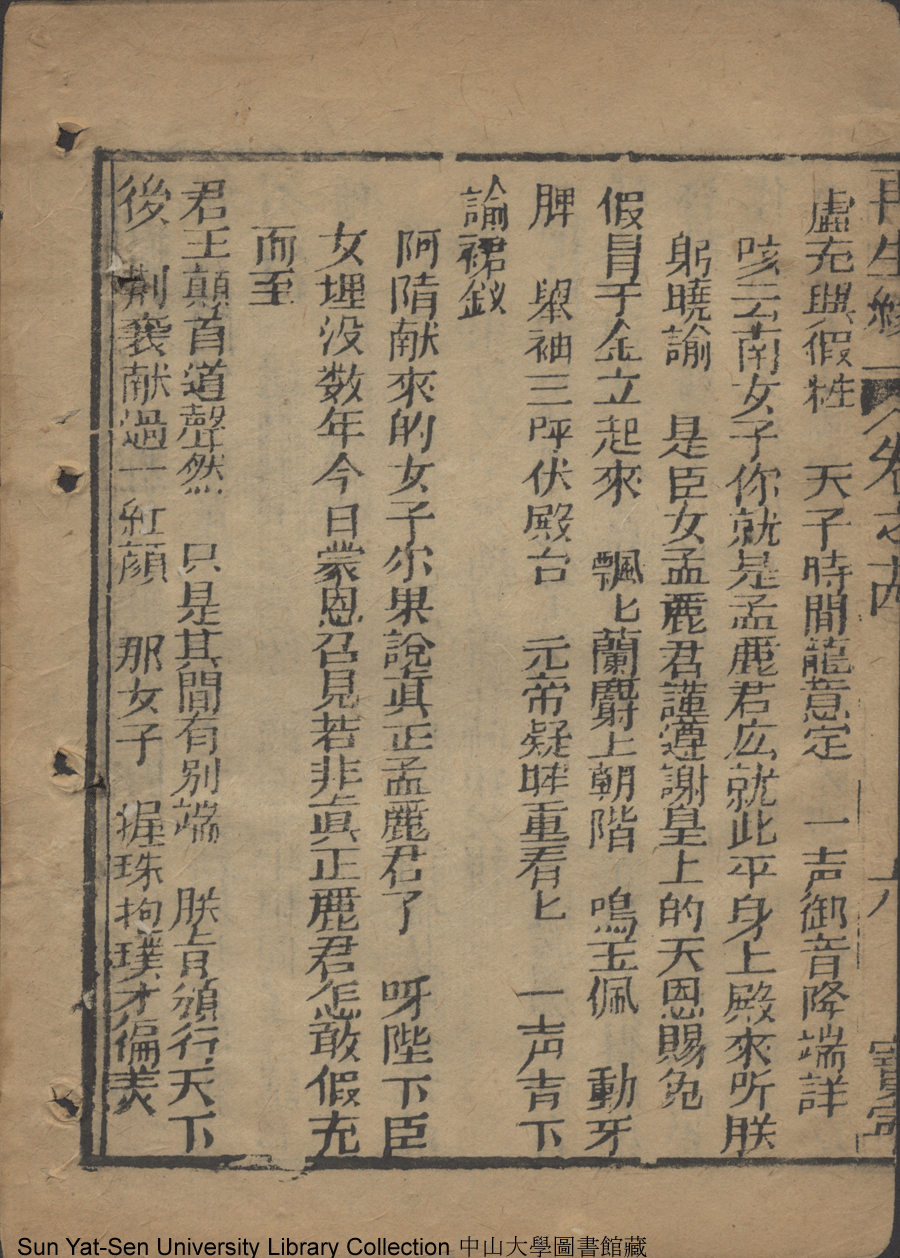 再生緣 卷之古 六 寶寧
虛充與假牲 天子時間龍意定 一声御音降端詳
咳云南女子你就是孟麗君広就此平身上殿來听朕
躬曉諭 是臣女孟麗君謹遵謝皇上的天恩賜免
假冐于金立起來 飄匕蘭麝上朝階 鳴玉佩 動牙
脾 舉袖三呼伏殿台 元帝疑眸重看匕 一声吉下
諭裙釵
阿隋献來的女子尔果說真正孟麗君了 呀陛下臣
女埋没数年今日蒙恩召見若非真正麗君怎敢假充
而至
君王顛首道聲然 只是其間有别端 朕㫖頒行天下
後 荆襄献過一紅顔 那女子 握珠抱璞才偏美
Sun Yat-Sen University Library Collection 中山大學圖書館藏